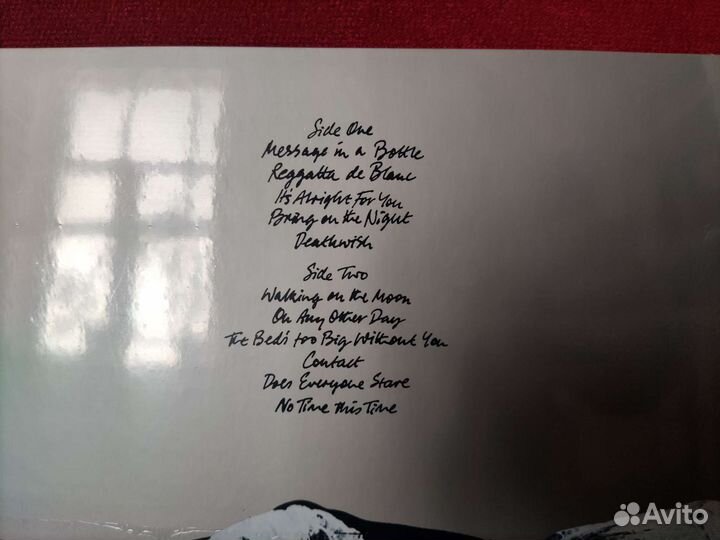 Side One
Message in a Bottle
Reggatta de Blanc
It's Alright For You
Bring on the Night
Deathwish
Side Two
Walking on the Moon
On Any Other Day
The Bed's too Big Without You
Contact
Does Everyone Stare
No Time this Time
Avito